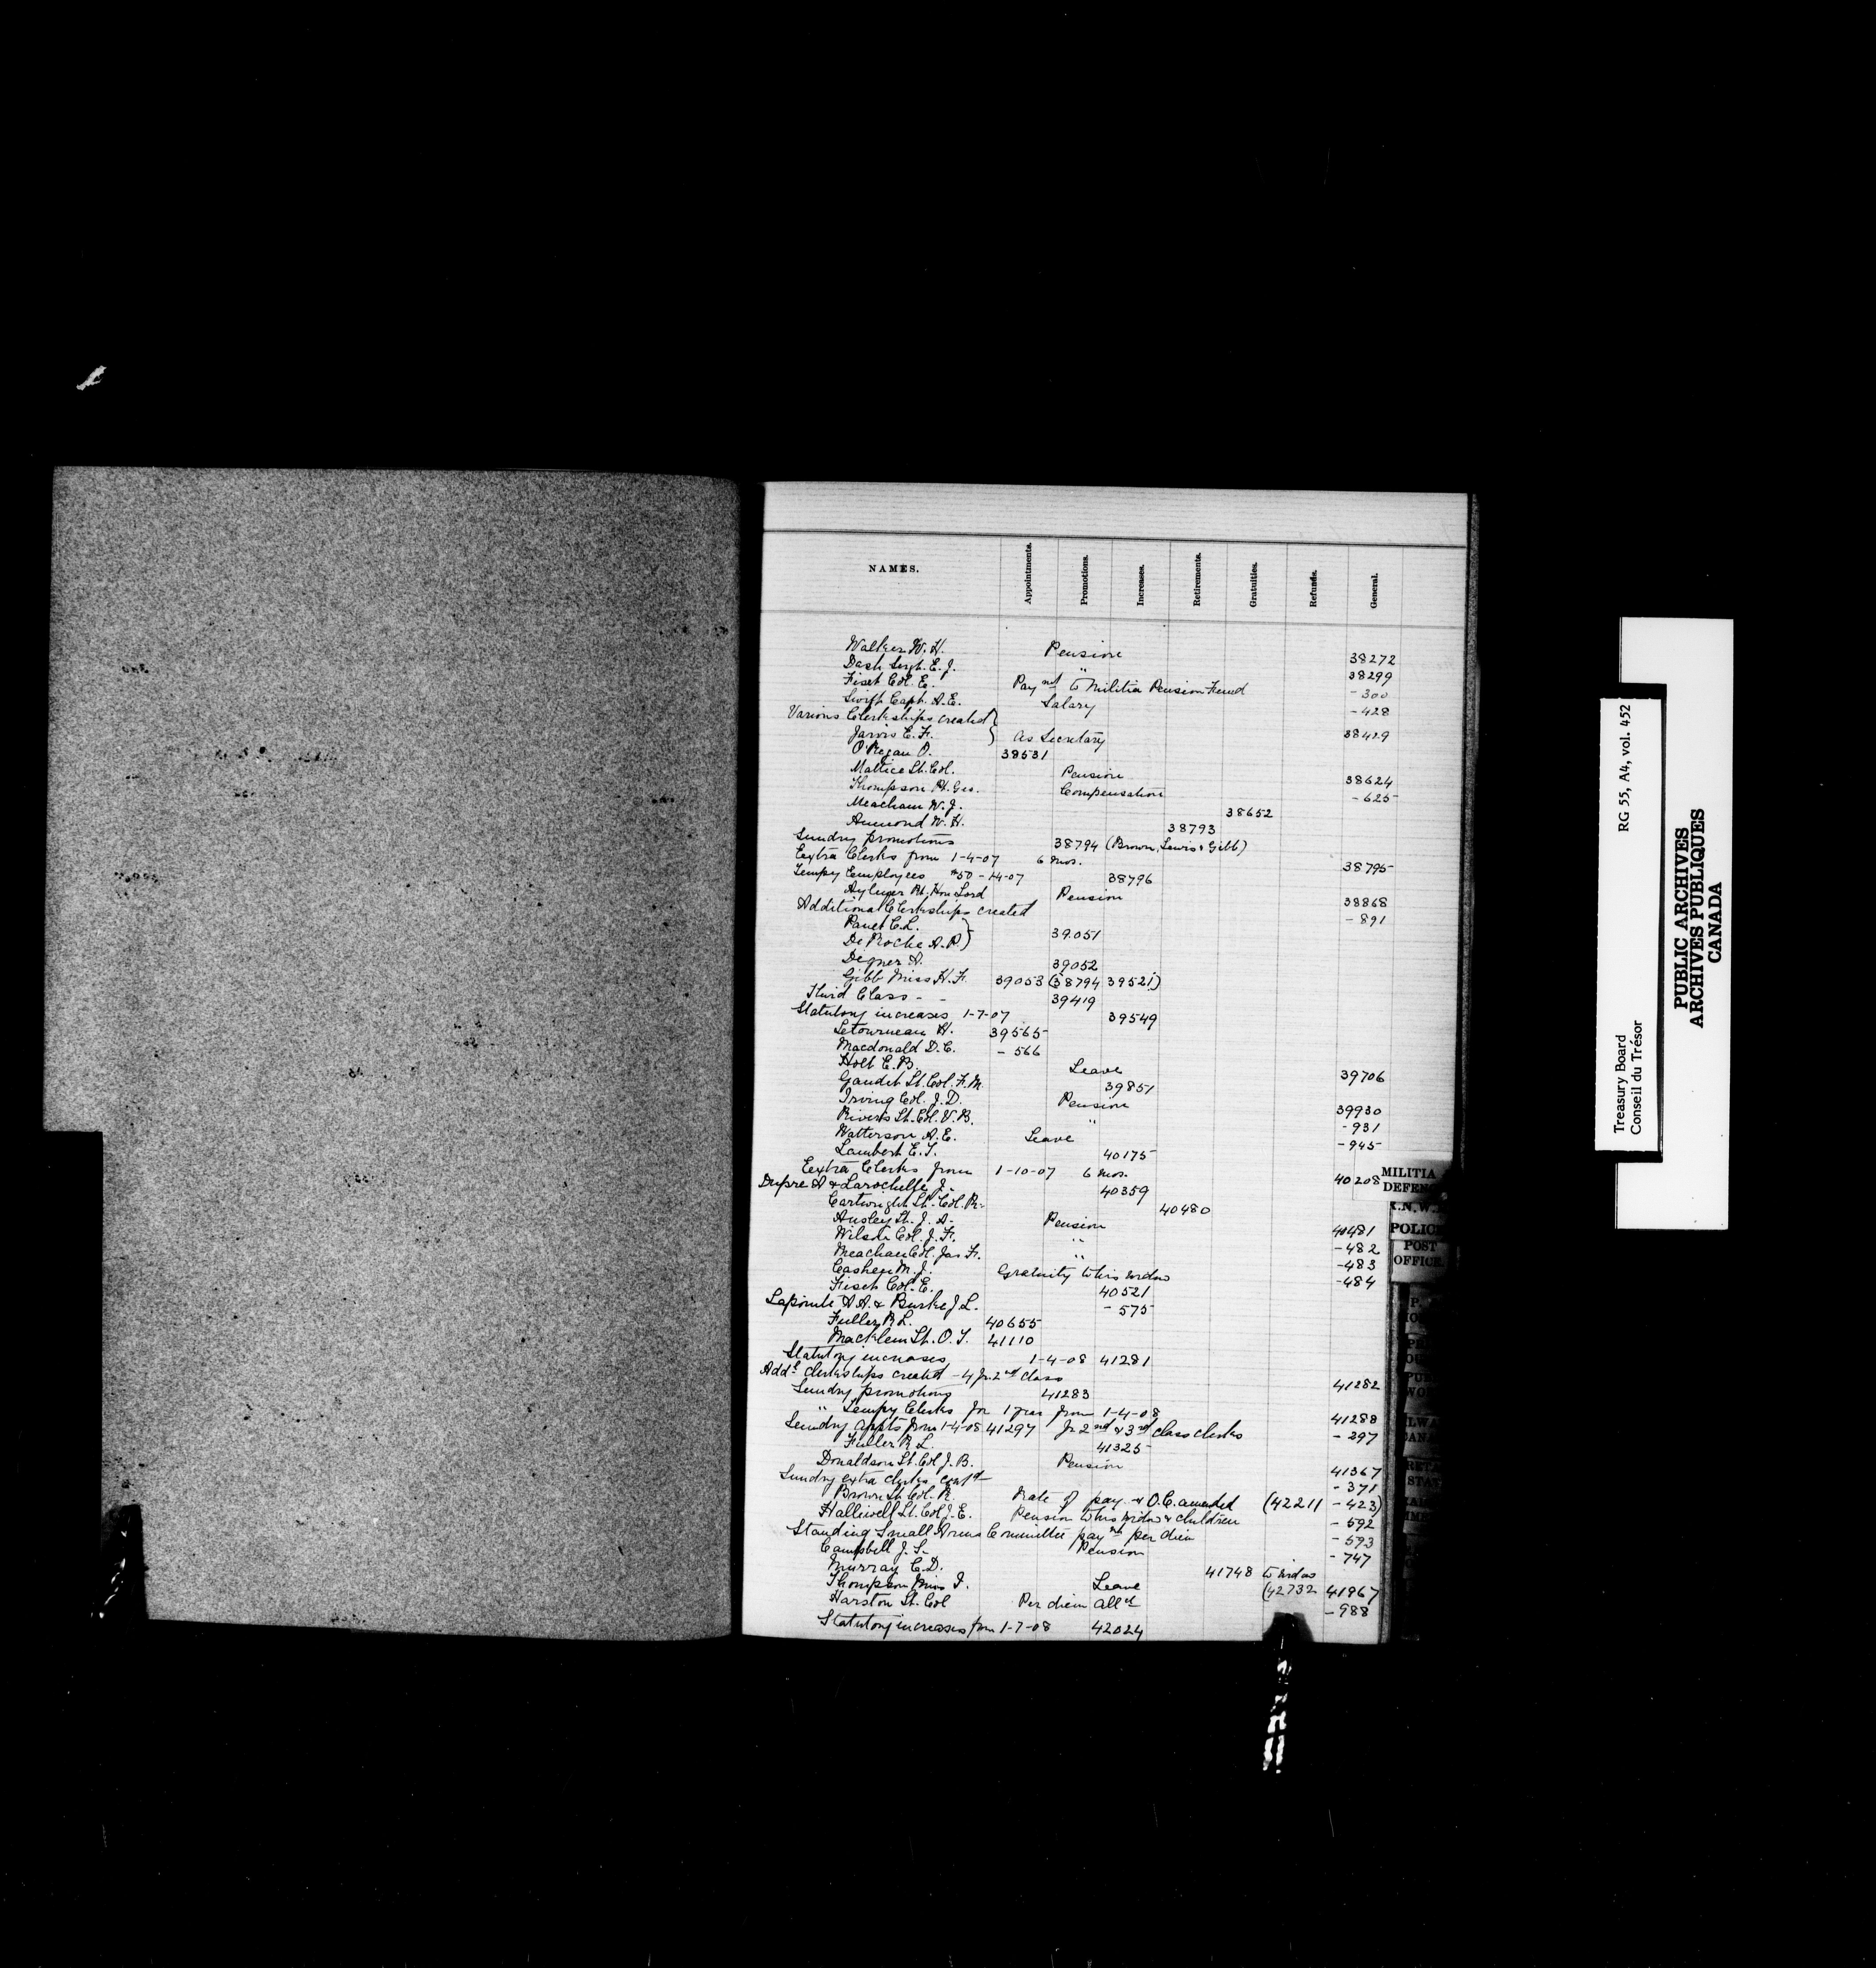 NAMES. Appointments. Promotions. Increases. Retirements. Gratuities. Refunds. General.
Walker W. H. Pension 38272
Dash Sergt. E. J. " 38299
Fiset Col. E. Paynt to Militia Pension Fund - 300
Swift Capt. A. E. Salary - 428
Various Clerkships created }
Jarvis E. F. } as Secretary 38429
O'Regan O. 38531
Mattice Lt. Col. Pension 38624
Thompson Pt. Geo. Compensation - 625
Meacham W. J. 38652
Aumond W. H. 38793
Sundry promotions 38794 (Brown, Lewis & Gibb)
Extra Clerks from 1-4-07 6 mos. 38795
Tempy Employees $50 - 1-4-07 38796
Aylmer Rt. Hon Lord Pension 38868
Additional Clerkships created - 891
Panet C. L. }
De Roche A. P. } 39051
Degner A. 39052
Gibb Miss H. F. 39053 (38794 39521)
Third Class - - 39419
Statutory increases 1-7-07 39549
Letourneau H. 39565
Macdonald D. C. - 566
Holt E. B. Leave 39706
Gaudet Lt. Col. F. M. 39851
Irving Col. J. D. Pension 39930
Rivers Lt. Col. V. B. " - 931
Watterson A. E. Leave - 945
Lambert E. T. 40175
Extra Clerks from 1-10-07 6 mos. 40208
Dupre A & Larochelle J. 40359
Cartwright Lt. Col. R. 40480
Ansley Lt. J. A. Pension 40481
Wilson Col. J. F. " - 482
Meacham Col. Jas F. " - 483
Cashen M. J. Gratuity to his widow - 484
Fiset Col. E. 40521
Lapointe A. A. & Burke J. L. - 575
Fuller R. L. 40655
Macklem Lt. O. T. 41110
Statutory increases 1-4-08 41281
Addl clerkships created - 4 Jr. 2nd class 41282
Sundry promotions 41283
" Tempy Clerks for 1 year from 1-4-08 41288
Sundry appts from 1-4-08 41297 Jr 2nd & 3rd class clerks - 297
Fuller R. L. 41325
Donaldson Lt. Col J. B. Pension 41367
Sundry extra clerks - 371
Brown Lt. Col. R. Rate of pay & O.C. amended (42211 - 423)
Halliwell Lt. Col J. E. Pension to his widow & children - 592
Standing Small Arms Committee paynt per diem - 593
Campbell J. S. Pension - 747
Murray C. D. 41748 to widow
Thompson Miss I. Leave (42732 41967
Harston Lt. Col Per diem allce - 988
Statutory increases from 1-7-08 42024
MILITIA
DEFEN
POLICE
POST
OFFICE.
Treasury Board RG 55, A4, vol. 452
Conseil du Trésor
PUBLIC ARCHIVES
ARCHIVES PUBLIQUES
CANADA